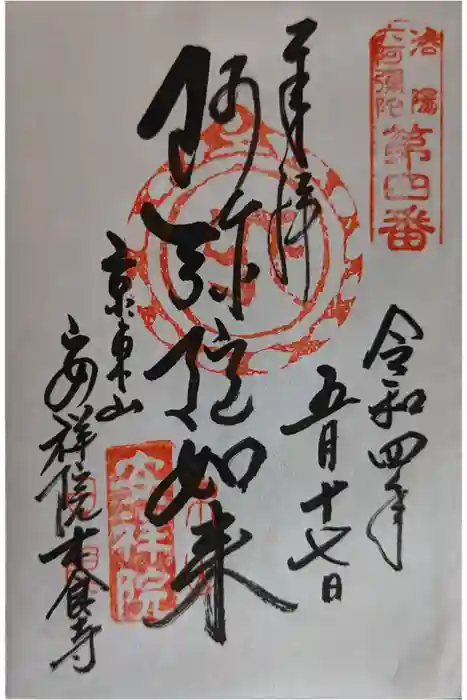 洛陽
六阿彌陀
第四番
奉拝
令和四年
五月十七日
阿弥陀如来
京東山
安祥院木食寺
安祥院